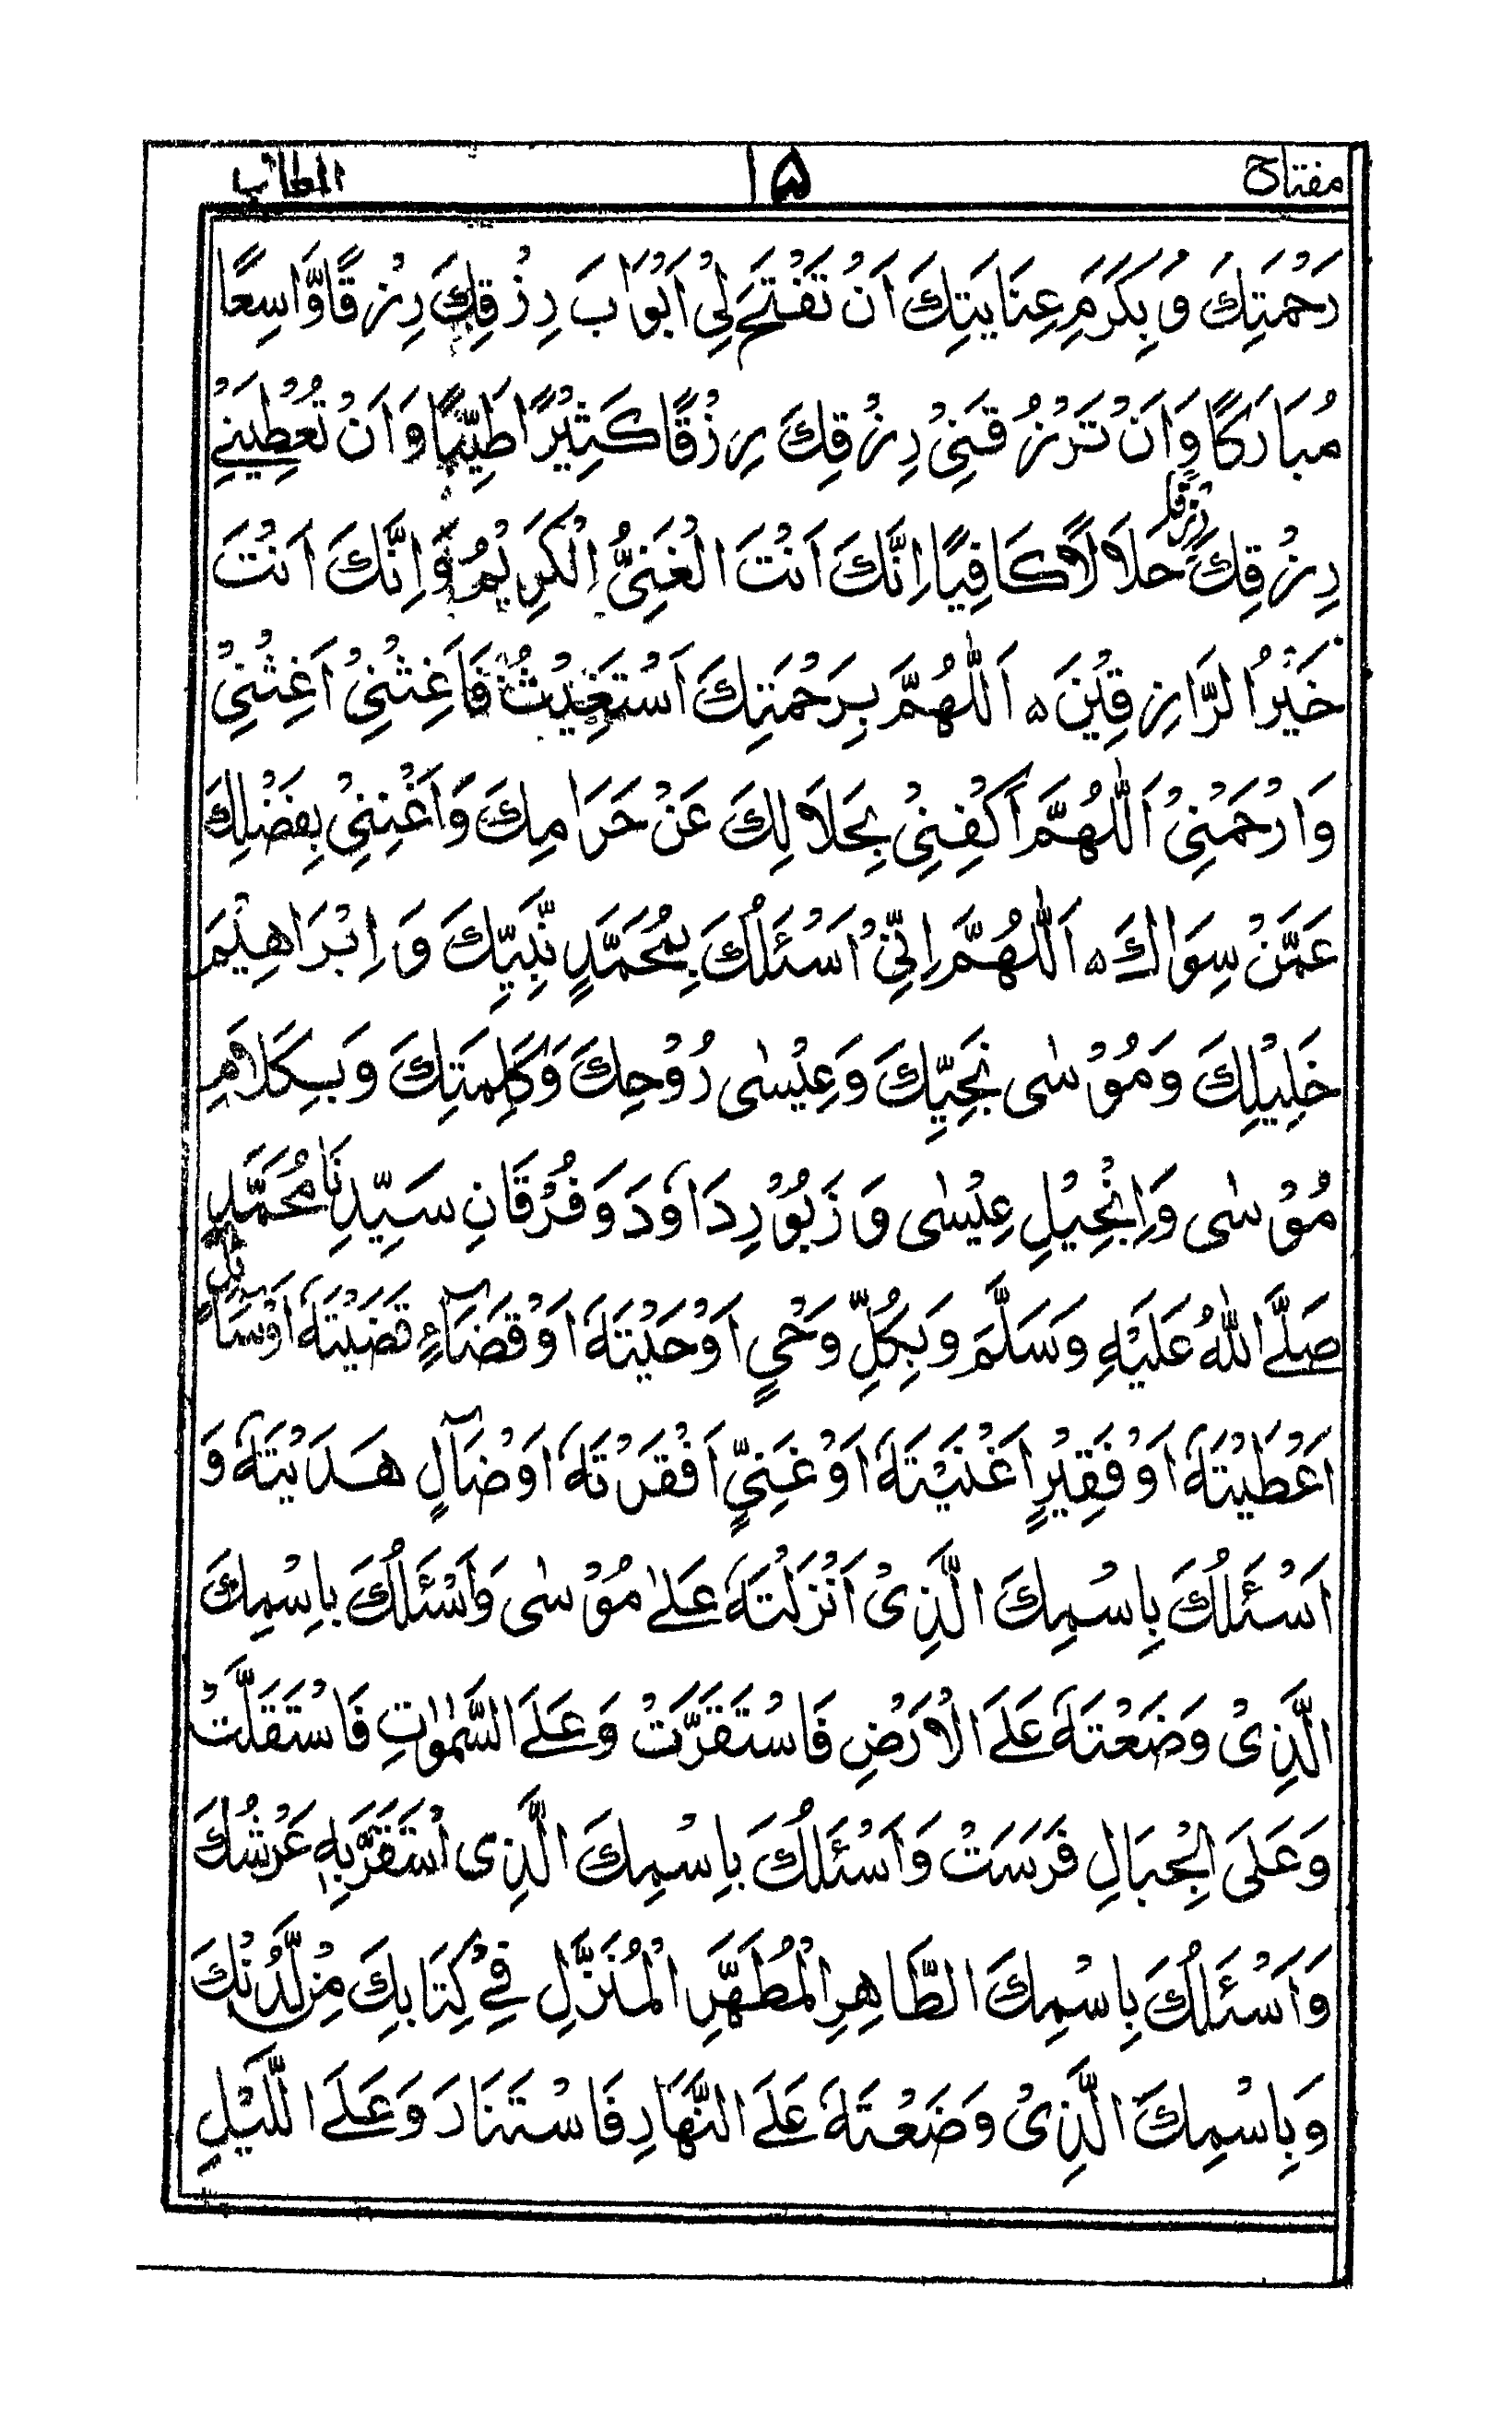 مفتاح ۱۵ المطالب
رَحْمَتِكَ وَبِكَرَمِ عِنَايَتِكَ اَنْ تَفْتَحَ لِىْ اَبْوَابَ رِزْقِكَ رِزْقًا وَّاسِعًا
مُبَارَكًا وَاَنْ تَرْزُقَنِىْ رِزْقِكَ رِزْقًا كَثِيْرًا طَيِّبًا وَ اَنْ تُعْطِيَنِىْ
رِزْقِكَ رِزْقًا حَلَالًا كَافِيًا اِنَّكَ اَنْتَ الْغَنِىُّ الْكَرِيْمُ وَ اِنَّكَ اَنْتَ
خَيْرُ الرَّازِقِيْنَ ۵ اَللّٰهُمَّ بِرَحْمَتِكَ اَسْتَغِيْثُ فَاَغِثْنِىْ اَغِثْنِىْ
وَارْحَمْنِىْ اَللّٰهُمَّ اَكْفِنِىْ بِحَلَالِكَ عَنْ حَرَامِكَ وَاَغْنِنِىْ بِفَضْلِكَ
عَمَّنْ سِوَاكَ ۵ اَللّٰهُمَّ اِنِّىْ اَسْئَلُكَ بِمُحَمَّدٍ نَّبِيِّكَ وَ اِبْرَاهِيْمَ
خَلِيْلِكَ وَمُوْسٰى نَجِيِّكَ وَعِيْسٰى رُوْحِكَ وَكَلِمَتِكَ وَبِكَلَامِ
مُوْسٰى وَاِنْجِيْلِ عِيْسٰى وَ زَبُوْرِ دَاوٗدَ وَفُرْقَانِ سَيِّدِنَا مُحَمَّدٍ
صَلَّى اللّٰهُ عَلَيْهِ وَسَلَّمَ وَبِكُلِّ وَحْىٍ اَوْحَيْتَهٗ اَوْ قَضَآءٍ قَضَيْتَهٗ اَوْسَآئِلٍ
اَعْطَيْتَهٗ اَوْ فَقِيْرٍ اَغْنَيْتَهٗ اَوْ غَنِىٍّ اَفْقَرْتَهٗ اَوْ ضَآلٍ هَدَيْتَهٗ وَ
اَسْئَلُكَ بِاسْمِكَ الَّذِىْ اَنْزَلْتَهٗ عَلٰى مُوْسٰى وَاَسْئَلُكَ بِاسْمِكَ
الَّذِىْ وَضَعْتَهٗ عَلَى الْاَرْضِ فَاسْتَقَرَّتْ وَعَلَى السَّمٰوٰتِ فَاسْتَقَلَّتْ
وَعَلَى الْجِبَالِ فَرَسَتْ وَاَسْئَلُكَ بِاسْمِكَ الَّذِى اسْتَقَرَّ بِهٖ عَرْشُكَ
وَاَسْئَلُكَ بِاسْمِكَ الطَّاهِرِ الْمُطَهَّرِ الْمُنَزَّلِ فِىْ كِتَابِكَ مِنْ لَّدُنْكَ
وَبِاسْمِكَ الَّذِىْ وَضَعْتَهٗ عَلَى النَّهَارِ فَاسْتَنَارَ وَعَلَى اللَّيْلِ